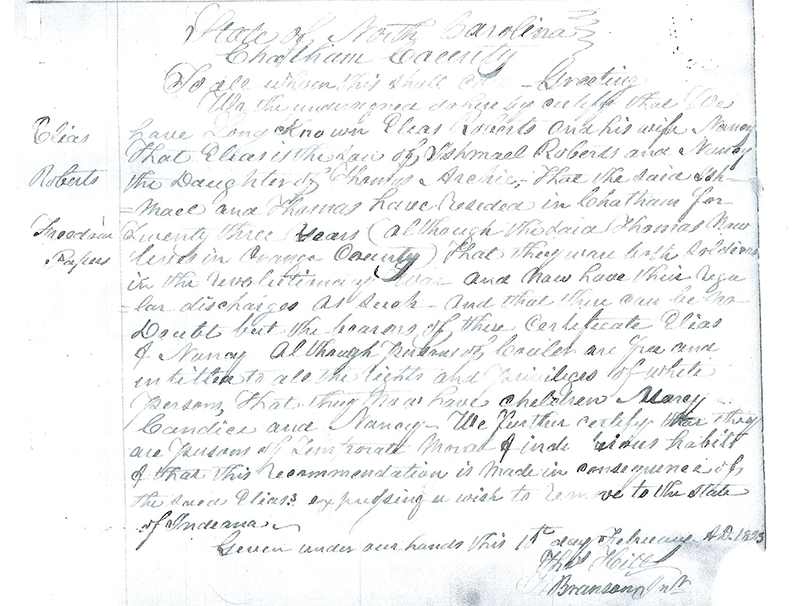 State of North Carolina
Chatham County
To all whom this shall come Greeting
We the undersigned do hereby certify that We
Elias
have Long Known Elias Roberts and his wife Nancy
That Elias is the son of Ishmael Roberts and Nancy
Roberts
the Daughter of Thomas Archie, That the said Ish-
-mael and Thomas have resided in Chatham for
Freedom
Twenty three Years (although the said Thomas Now
Papers
lives in Orange County) That they ware both Soldiers
in the revolutionary War and Now have their regu
-lar discharges as such and that there can be No
Doubt but the bearers of this Certificate Elias
& Nancy Although persons of Couler are free and
intitled to all the rights and privilices of white
Persons, That they Now have children
Candice and Nancy We further certify that they
are persons of Temporate Moral & industrious habits
& that this recommendation is made in consequence of
the said Elias expressing a wish to remove to the State
of Indeana
Given under our hands this 10th day February A.D. 1823
Thos Hill
Branson